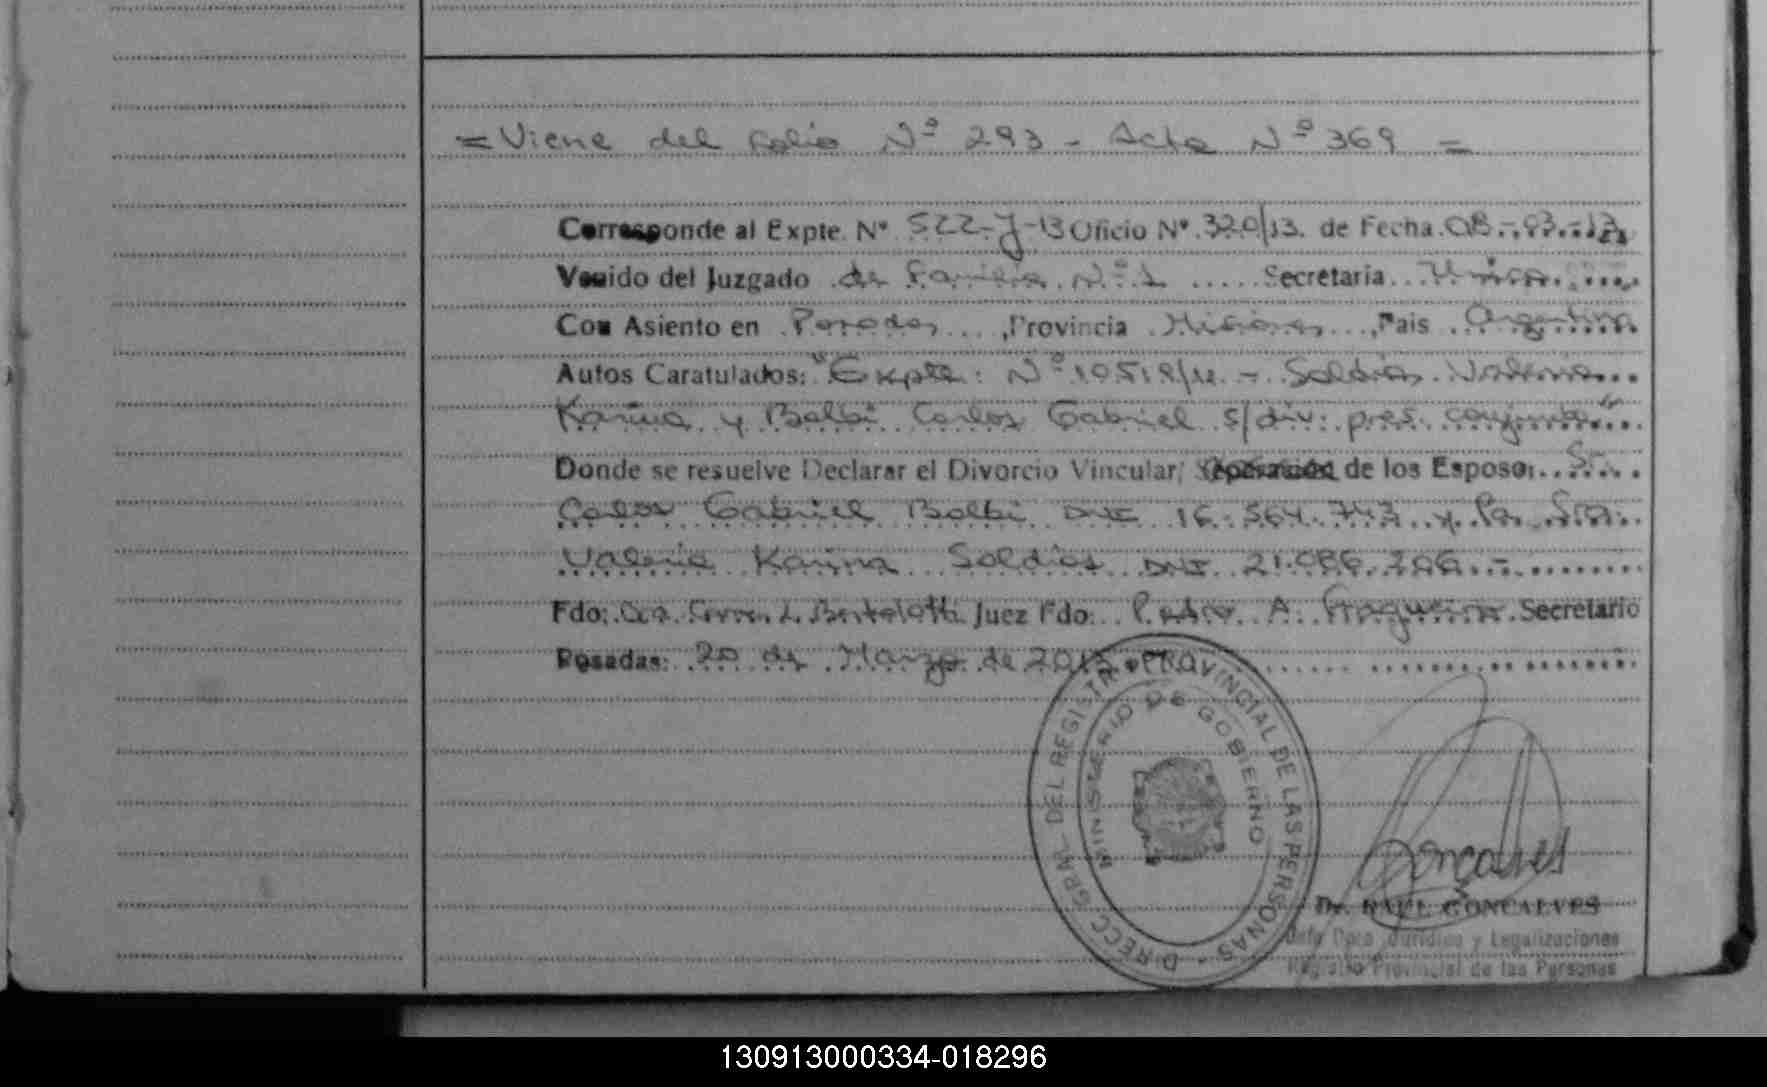 = Viene del folio Nº 293 - Acta Nº 369 =
Corresponde al Expte. Nº 522-J-13 Oficio Nº 320/13. de Fecha 08-03-13
Venido del Juzgado de Familia Nº 1 Secretaria Unica
Con Asiento en Posadas, Provincia Misiones, Pais Argentina
Autos Caratulados: "Expte: Nº - Soldias Valeria
Karina y Balbi Carlos Gabriel s/div. pres. conjunta"
Donde se resuelve Declarar el Divorcio Vincular, de los Esposos Sr.
Carlos Gabriel Balbi DNI 16.564.743 y la Sra.
Valeria Karina Soldias DNI 21.
Fdo: L. Bertolotti Juez Fdo: Pedro A. Fragueiro Secretario
Posadas: 20 de Marzo de 2013
DIRECC. GRAL. DEL REGISTRO PROVINCIAL DE LAS PERSONAS
MINISTERIO DE GOBIERNO
Goncalves
Dr. RAUL GONCALVES
Jefe Dpto. Jurídico y Legalizaciones
Registro Provincial de las Personas
130913000334-018296